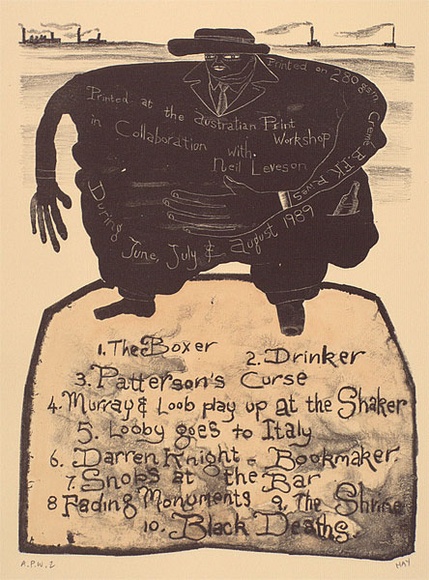 Printed on 280 gsm
Creme B.F.K. Rives
Printed at the australian Print
Workshop
in Collaboration with
Neil Leveson
During June, July & august 1989
1. The Boxer
2. Drinker
3. Patterson's Curse
4. Murray & Loob play up at the Shaker
5. Looby goes to Italy
6. Darren Knight - Bookmaker
7. Snobs at the Bar
8 Fading Monuments 9. The Shrine
10. Black Deaths.
A.P.W. 2
HAY